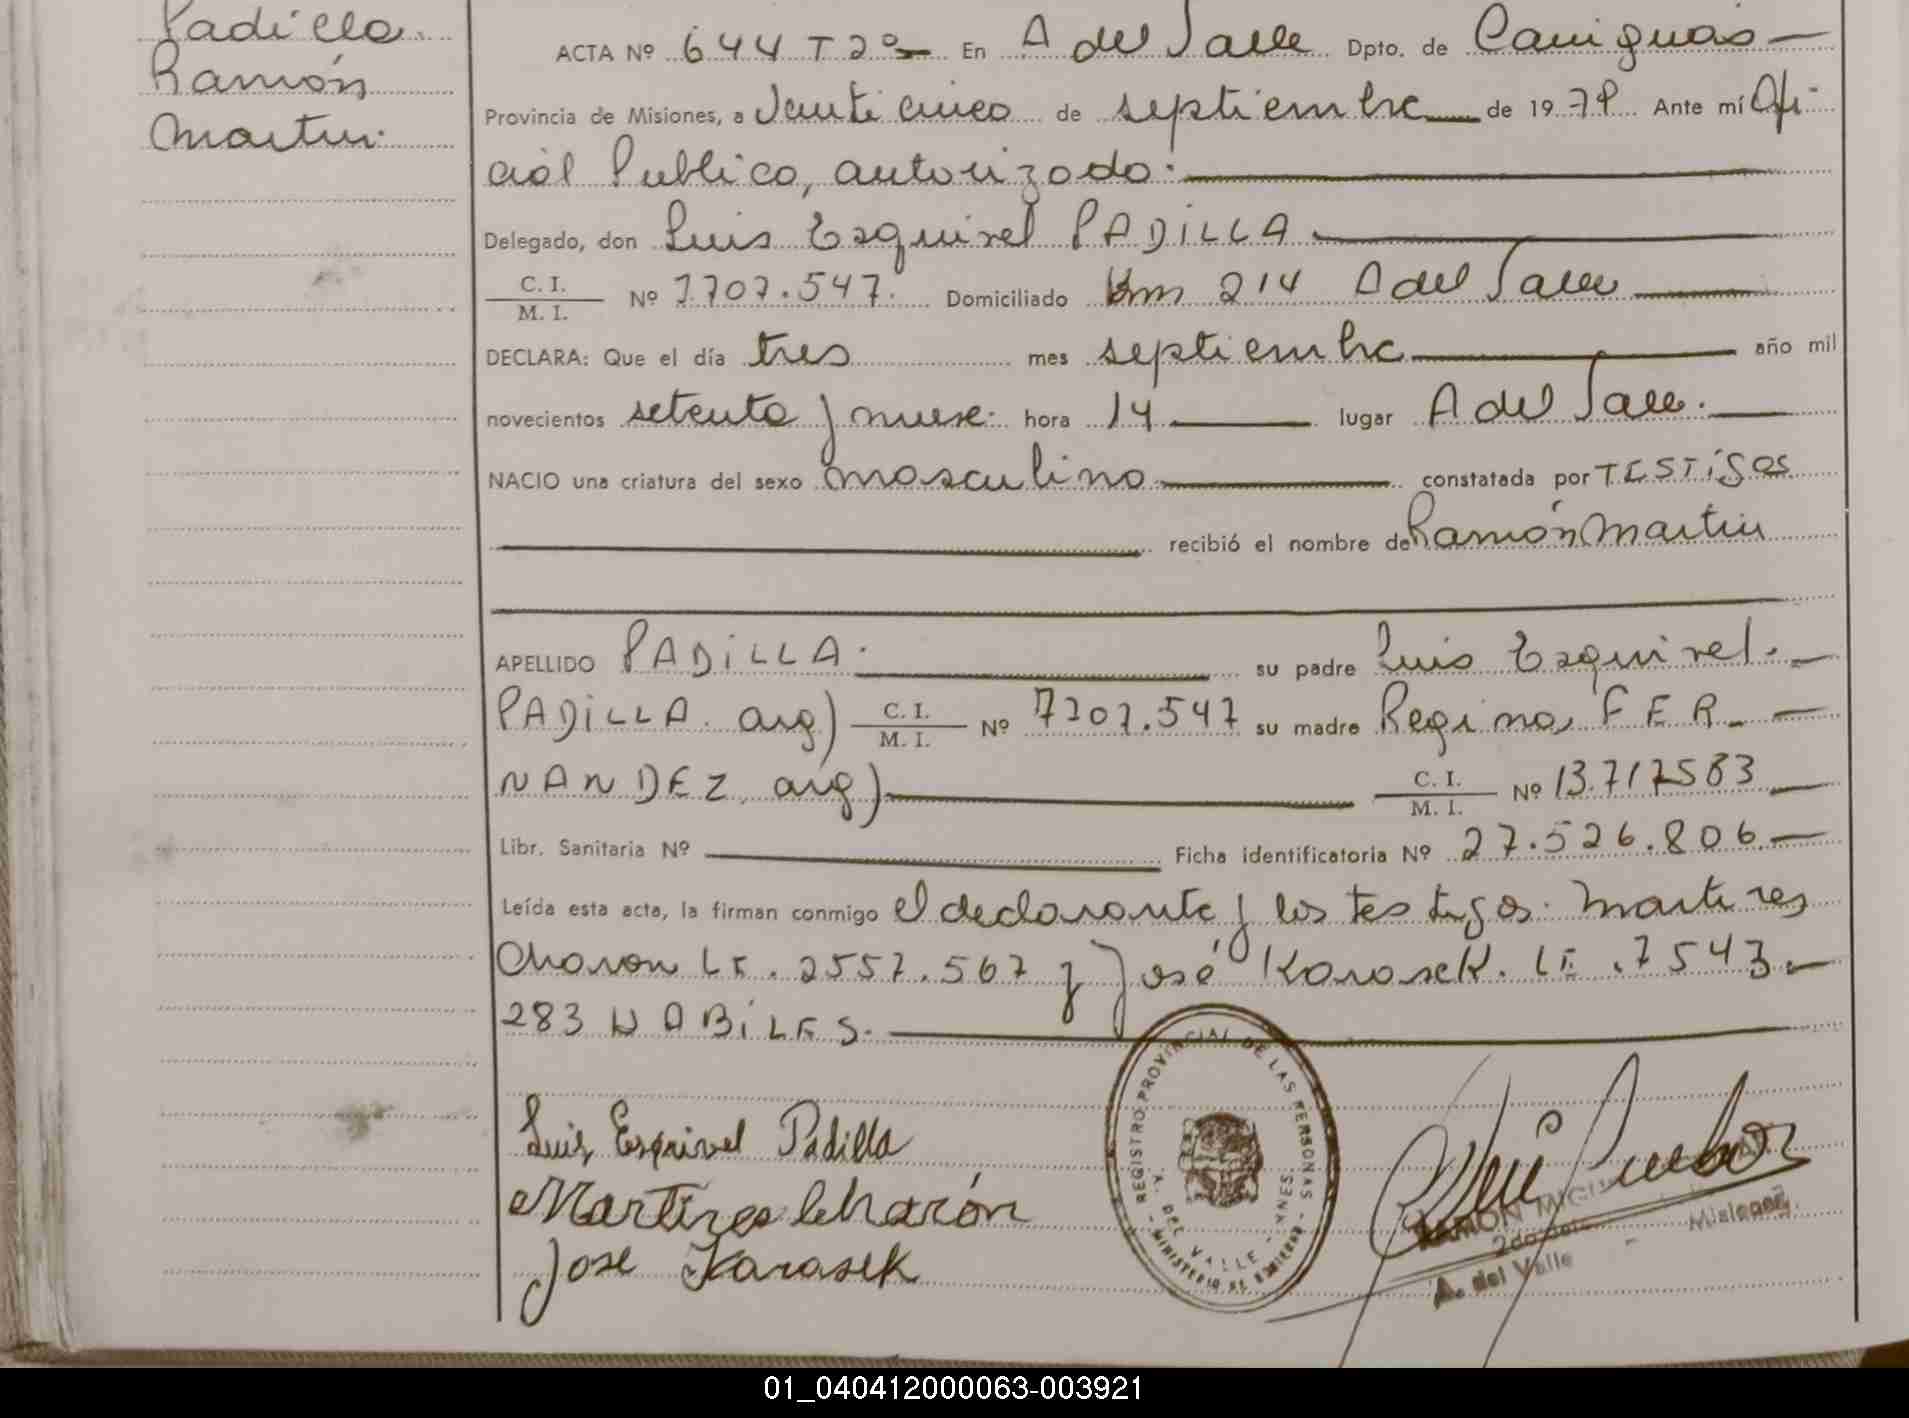 Padilla.
Ramón
Martin.
ACTA Nº 644 T 2º En A del Valle Dpto. de Cainguás
Provincia de Misiones, a Veinticinco de septiembre de 1979. Ante mí Ofi-
cial Publico, autorizado.
Delegado, don Luis Esquivel PADILLA
C. I. / M. I. Nº 7.707.547. Domiciliado Km 214 A del Valle
DECLARA: Que el día tres mes septiembre año mil
novecientos setenta y nueve. hora 14 lugar A del Valle.
NACIO una criatura del sexo masculino constatada por TESTiGOS
recibió el nombre de Ramón Martin
APELLIDO PADiLLA. su padre Luis Esquivel.
PADiLLA. arg) C. I. / M. I. Nº 7707.547 su madre Regina, FER-
NANDEZ, arg) C. I. / M. I. Nº 13.717583
Libr. Sanitaria Nº Ficha identificatoria Nº 27.526.806
Leída esta acta, la firman conmigo el declarante y los testigos. Martires
Charon LE. 2557.567 y José Karasek. LE. 7543.
283 HABiLES.
Luis Esquivel Padilla
Martires Charón
José Karasek
REGISTRO PROVINCIAL DE LAS PERSONAS - MINISTERIO DE GOBIERNO
A. DEL VALLE - MISIONES
RAMON MIGUEL
Misiones
A. del Valle
01_040412000063-003921